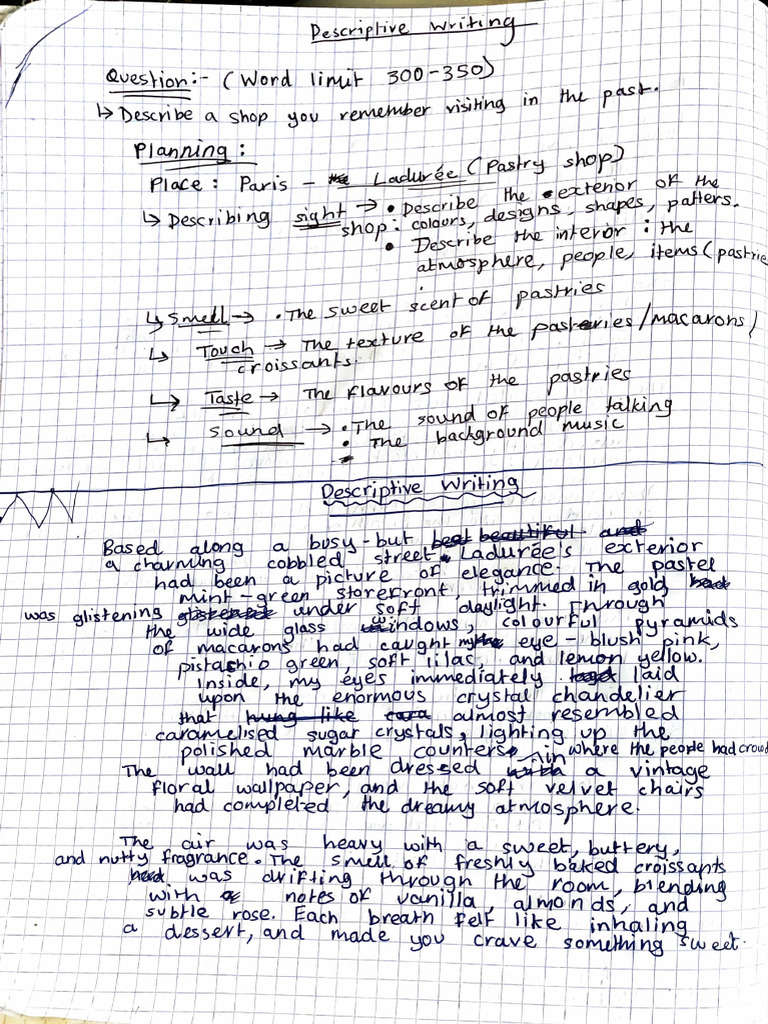 Descriptive Writing
Question:- (Word limit 300-350)
↳ Describe a shop you remember visiting in the past.
Planning:
Place: Paris - Ladurée (Pastry shop)
↳ Describing sight → • Describe the exterior of the
shop: colours, designs, shapes, patters.
• Describe the interior: the
atmosphere, people, items (pastrie
↳ Smell → • The sweet scent of pastries
↳ Touch → The texture of the pasteries/macarons/
croissants.
↳ Taste → The flavours of the pastries
↳ Sound → • The sound of people talking
• The background music
Descriptive Writing
Based along a busy-but beautiful and
a charming cobbled street. Ladurée's exterior
had been a picture of elegance. The pastel
mint-green storefront, trimmed in gold
was glistening under soft daylight. Through
the wide glass windows, colourful pyramids
of macarons had caught my eye - blush pink,
pistachio green, soft lilac, and lemon yellow.
Inside, my eyes immediately laid
upon the enormous crystal chandelier
that hung like almost resembled
caramelised sugar crystals, lighting up the
polished marble counters, where the people had crowd
The wall had been dressed in a vintage
floral wallpaper, and the soft velvet chairs
had completed the dreamy atmosphere.
The air was heavy with a sweet, buttery,
and nutty fragrance. The smell of freshly baked croissants
was drifting through the room, blending
with notes of vanilla, almonds, and
subtle rose. Each breath felt like inhaling
a dessert, and made you crave something sweet.